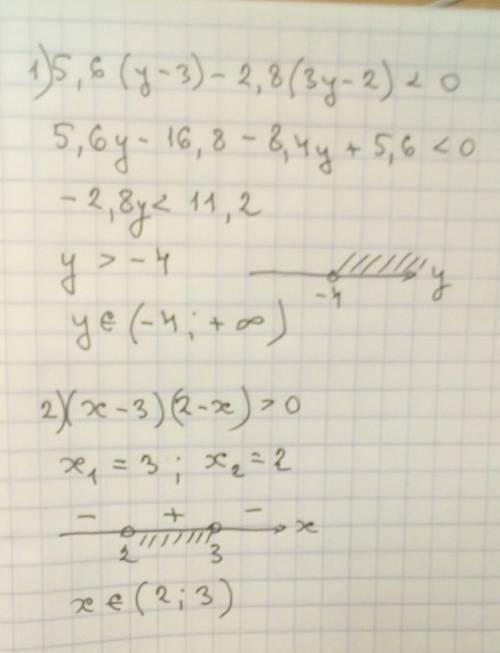 1) 5,6 (y-3) - 2,8(3y-2) < 0
5,6y - 16,8 - 8,4y + 5,6 < 0
-2,8y < 11,2
y > -4
y
-4
y ∈ (-4; +∞)
2) (x-3)(2-x) > 0
x₁ = 3; x₂ = 2
- + -
x
2 3
x ∈ (2; 3)